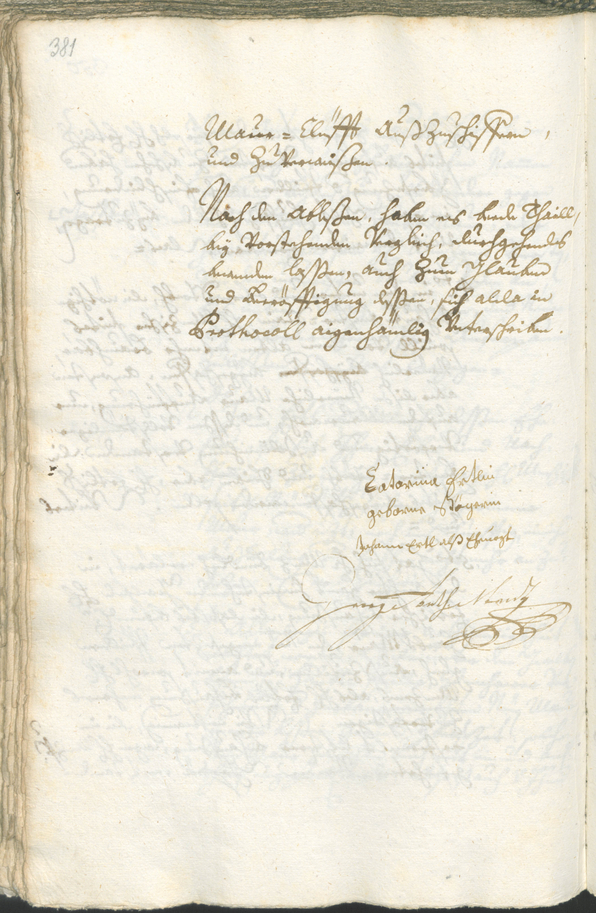 381
Maur=Clüfft Außzuschiffern,
und Zu Verweißen.
Nach dem Ableßen, haben es beede Theill,
bey Vorstehenden Verglich, durchgehends
bewenden laßen, auch Zum glauben
und Bekräfftigung deßen, sich alda in
Prothocoll aigenhändtig Unterschriben.
Catarina Ertlin
geborne Stögerin
Johann Ertl alß Ehevogt